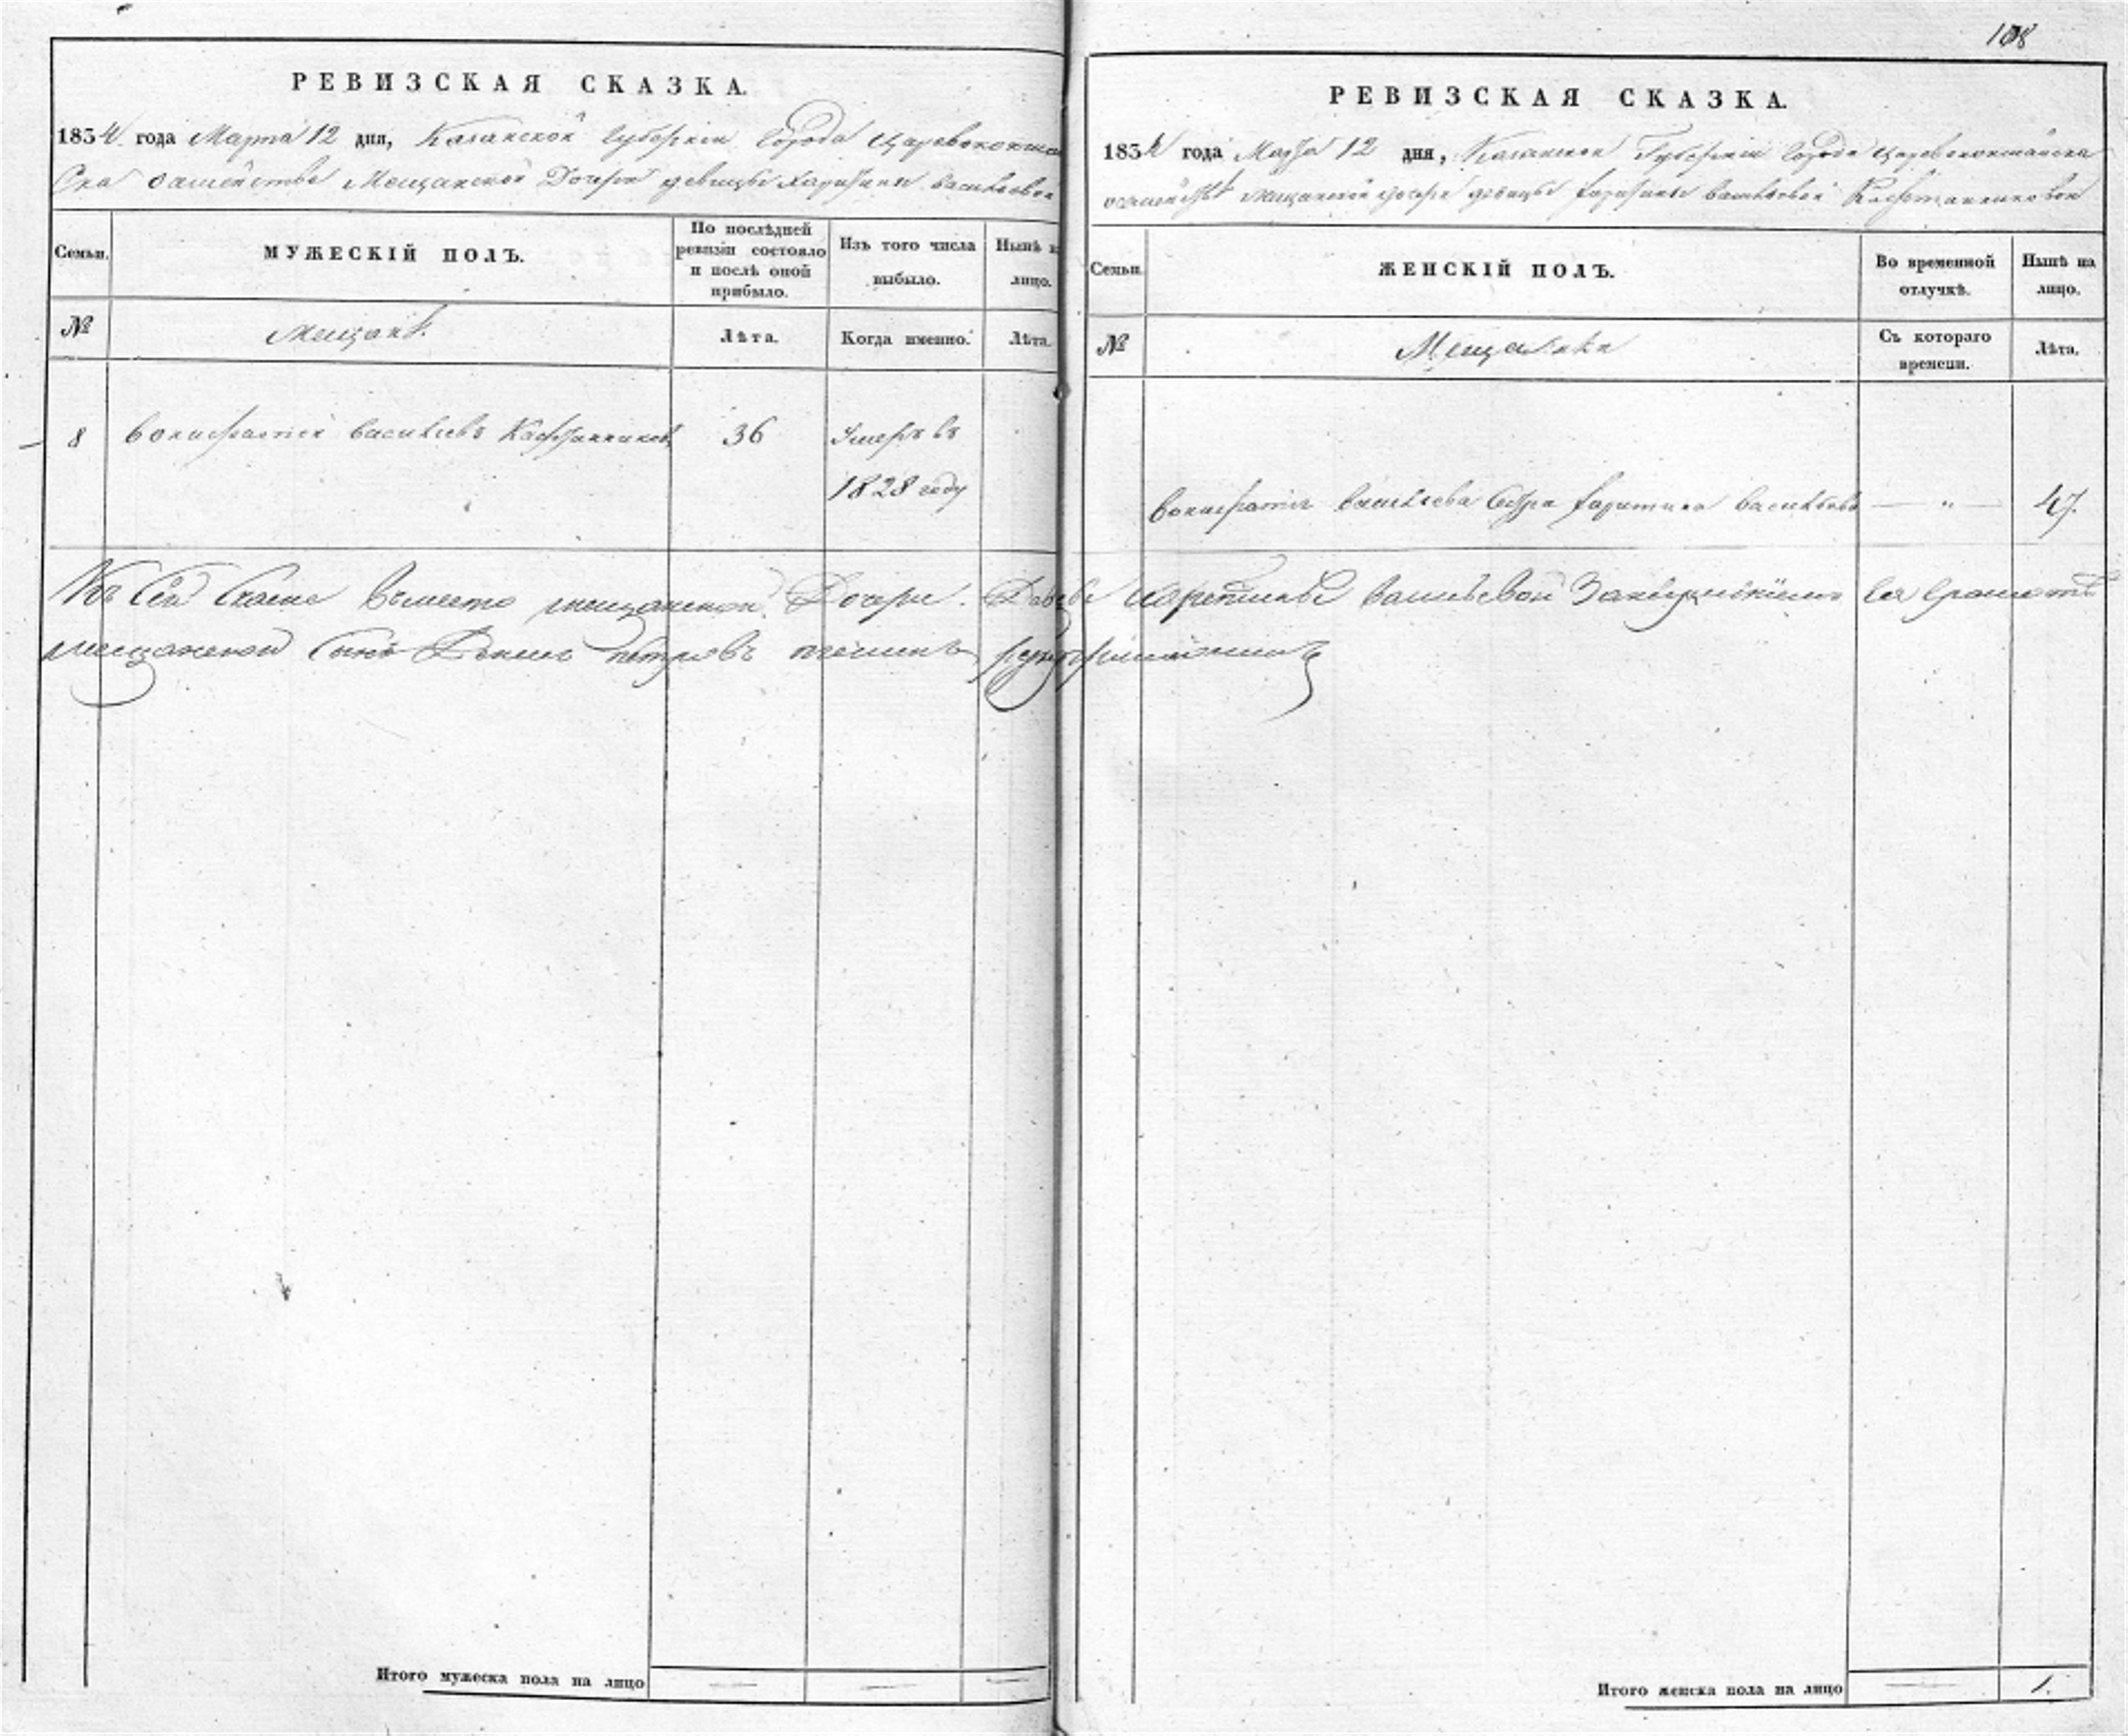 108
РЕВИЗСКАЯ СКАЗКА.
1834 года Марта 12 дня, Казанской Губернии Города Царевококшай
ска семейства Мещанской Дочери девицы Харитины Васильевой
Семьи.
МУЖЕСКІЙ ПОЛЪ.
По послѣдней ревизіи состояло и послѣ оной прибыло.
Изъ того числа выбыло.
Нынѣ на лицо.
№
Мещанъ.
Лѣта.
Когда именно.
Лѣта.
8
Васильевъ Кафтанниковъ
36
Умеръ въ
1828 году
Итого мужеска пола на лицо
РЕВИЗСКАЯ СКАЗКА.
1834 года Марта 12 дня, Казанской Губернии Города Царевококшайска
мещанской дочери девицы Харитины Васильевой Кафтанниковой
Семьи.
ЖЕНСКІЙ ПОЛЪ.
Во временной отлучкѣ.
Нынѣ на лицо.
№
Мещанка
Съ котораго времени.
Лѣта.
Васильева Сестра Харитина Васильева — " — 47.
Къ сей скаске вместо мещанской Дочери Васильевой
мещанской сынъ петровъ
Итого женска пола на лицо
1.